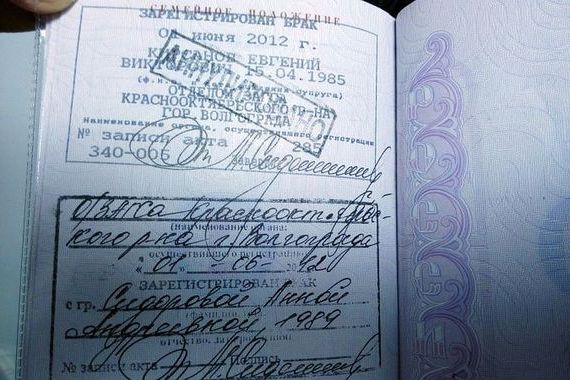 СЕМЕЙНОЕ ПОЛОЖЕНИЕ
ЗАРЕГИСТРИРОВАН БРАК
01 июня 2012 г.
ЕВГЕНИЙ
15.04.1985
ОТДЕЛОМ
КРАСНООКТЯБРЬСКОГО Р-НА
ГОР. ВОЛГОГРАДА
Наименование органа, осуществившего регистрацию
№ записи акта 285
340-006
О/ЗАГСа Краснооктябрьс-
кого р-на г. Волгограда
(наименование органа:
осуществившего регистрацию)
"01" - 06 - 2012
ЗАРЕГИСТРИРОВАН БРАК
с гр. Сидоровой Анной
Андреевной, 1989
отчество, дата
№ записи акта Подпись